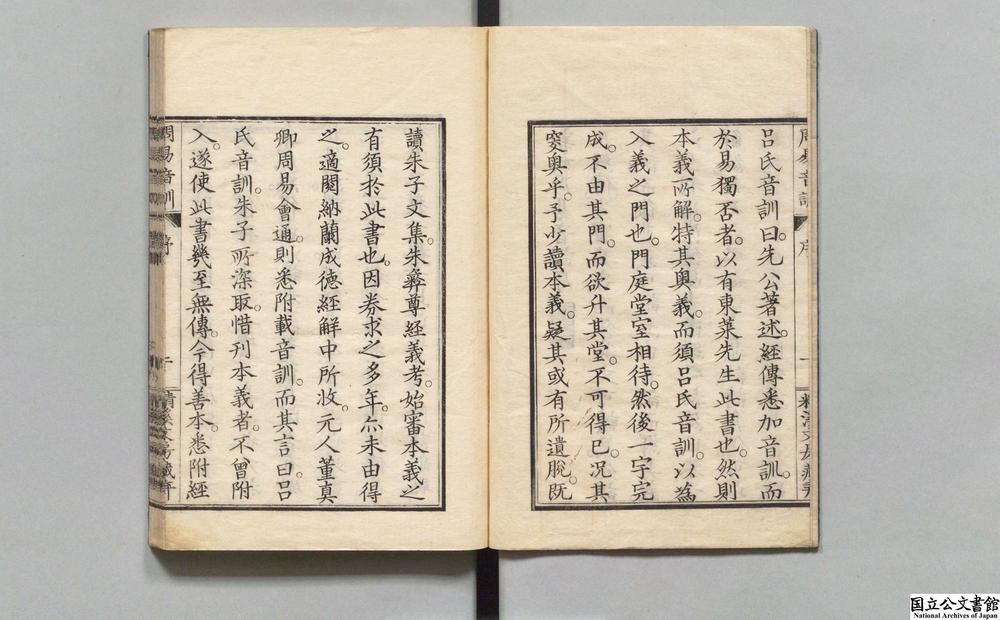 呂氏音訓曰。先公著述。經傳悉加音訓。而
於易獨否者。以有東萊先生此書也。然則
本義所解。特其奧義。而須呂氏音訓。以為
入義之門也。門庭堂室相待。然後一字完
成。不由其門。而欲升其堂。不可得已。況其
窔奧乎。予少讀本義。疑其或有所遺脫。既
讀朱子文集。朱彝尊經義考。始審本義之
有須於此書也。因劵求之多年。亦未由得
之。適閱納蘭成德經解中所收。元人董真
卿周易會通。則悉附載音訓。而其言曰。呂
氏音訓。朱子所深取。惜刊本義者。不曾附
入。遂使此書幾至無傳。今得善本。悉附經
周易音訓
序
國立公文書館
National Archives of Japan